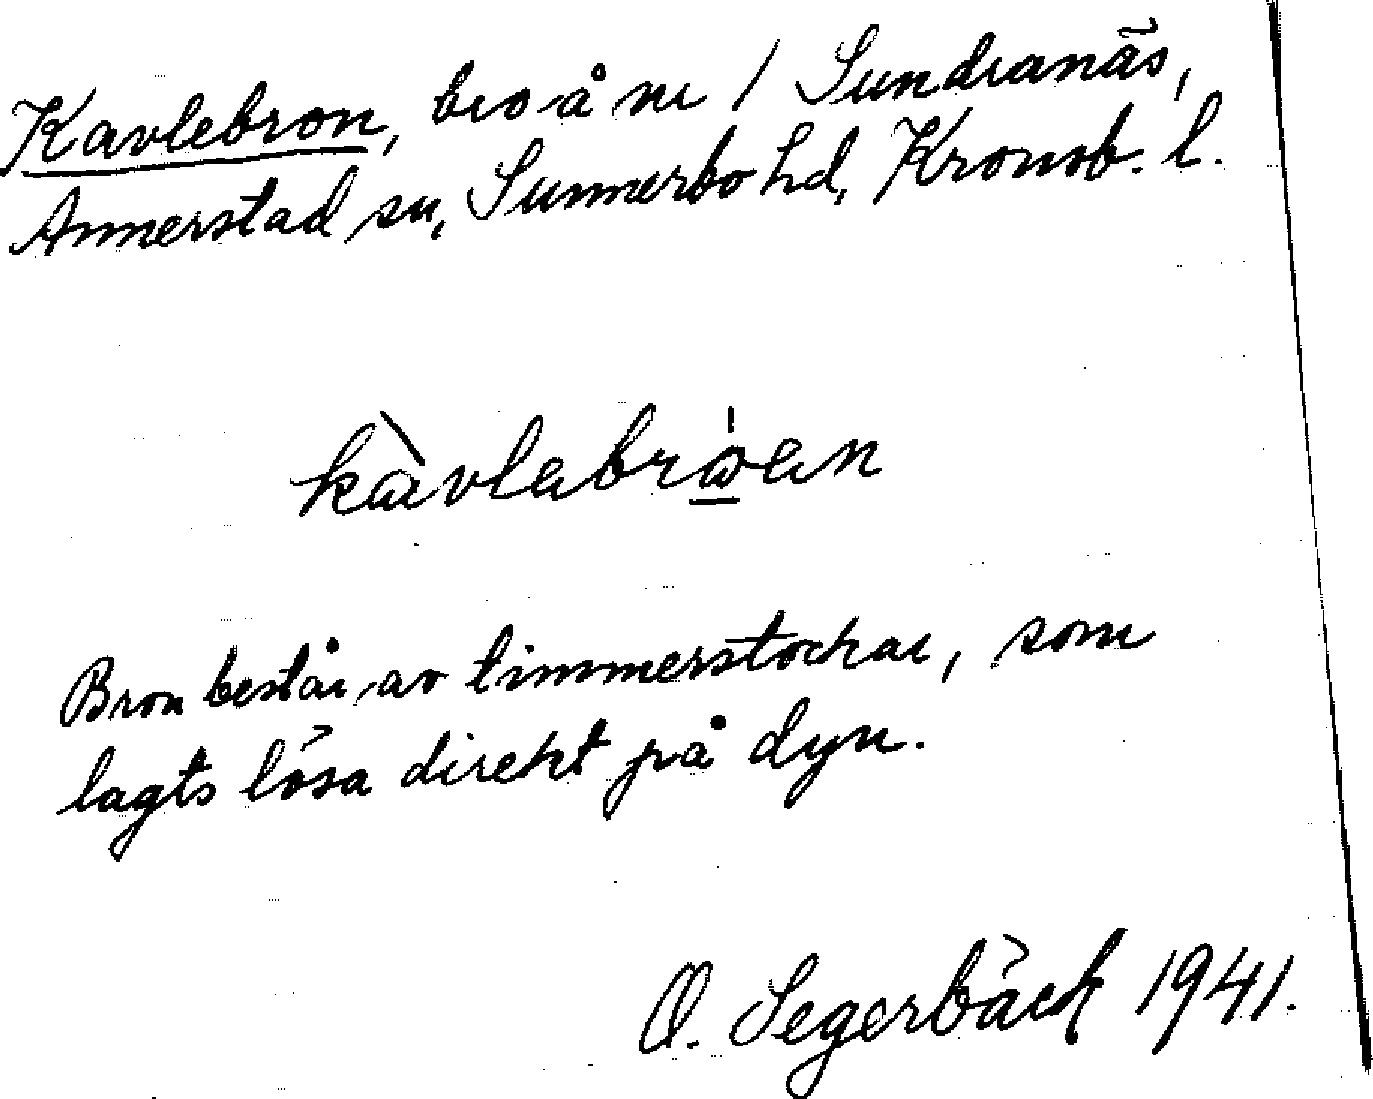 Kavlebron, bro å nr 1 Sundranäs,
Annerstad sn, Sunnerbo hd, Kronob. l.
kàvlabrώ̲an
Bron består av timmerstockar, som
lagts lösa direkt på dyn.
O. Segerbäck 1941.